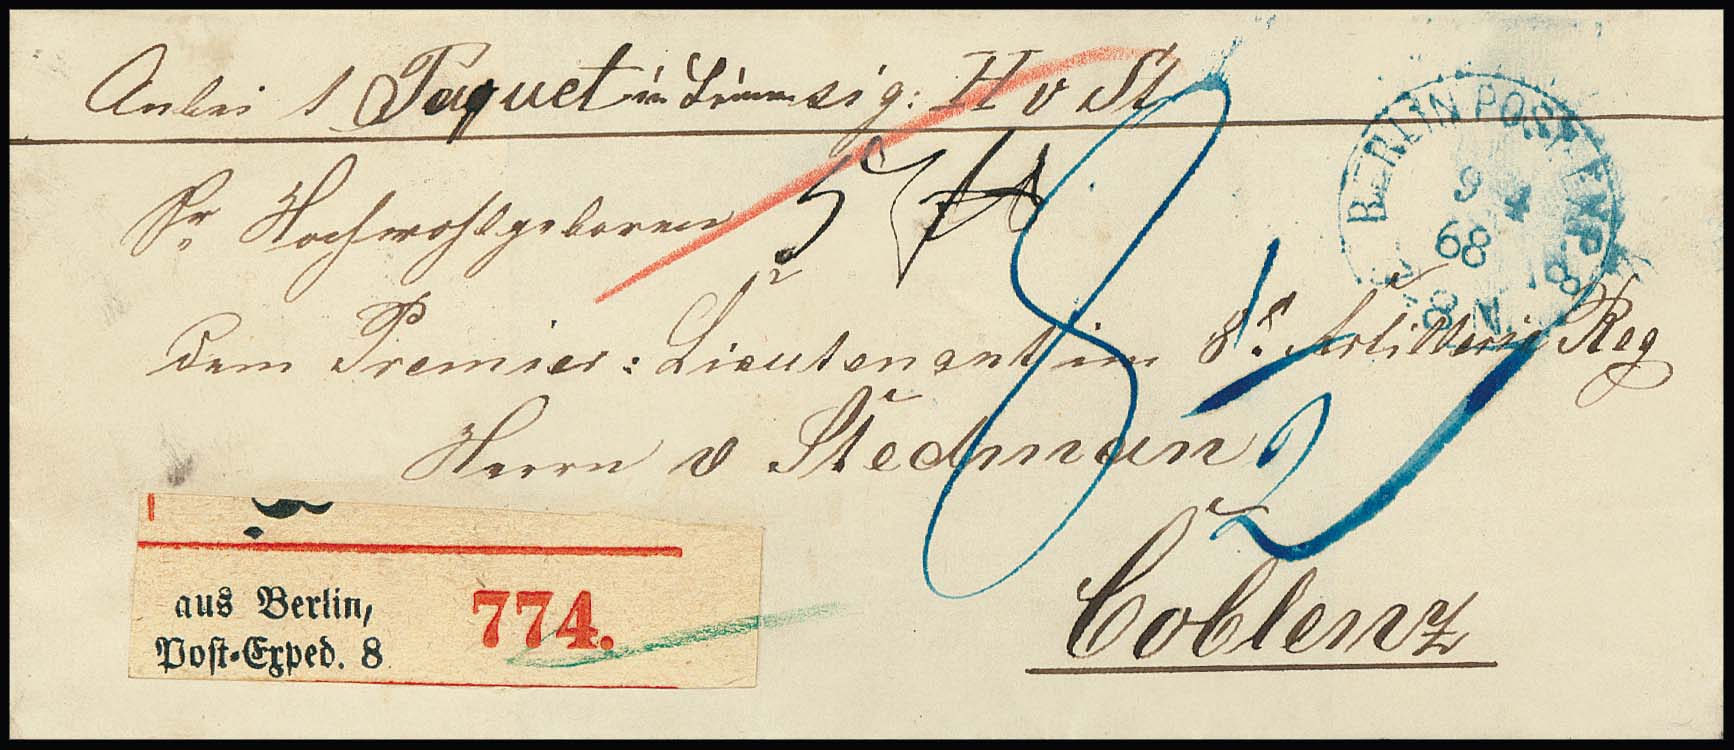 Anbei 1 Paquet in sig: H v St
BERLIN POST EXP. 8
9 4
68
Sr Hochwohlgeboren
5
8
dem Premier: Lieutenant im 8t Artillerie Reg
Herrn v Stedman
Coblenz
aus Berlin,
Post-Exped. 8
774.